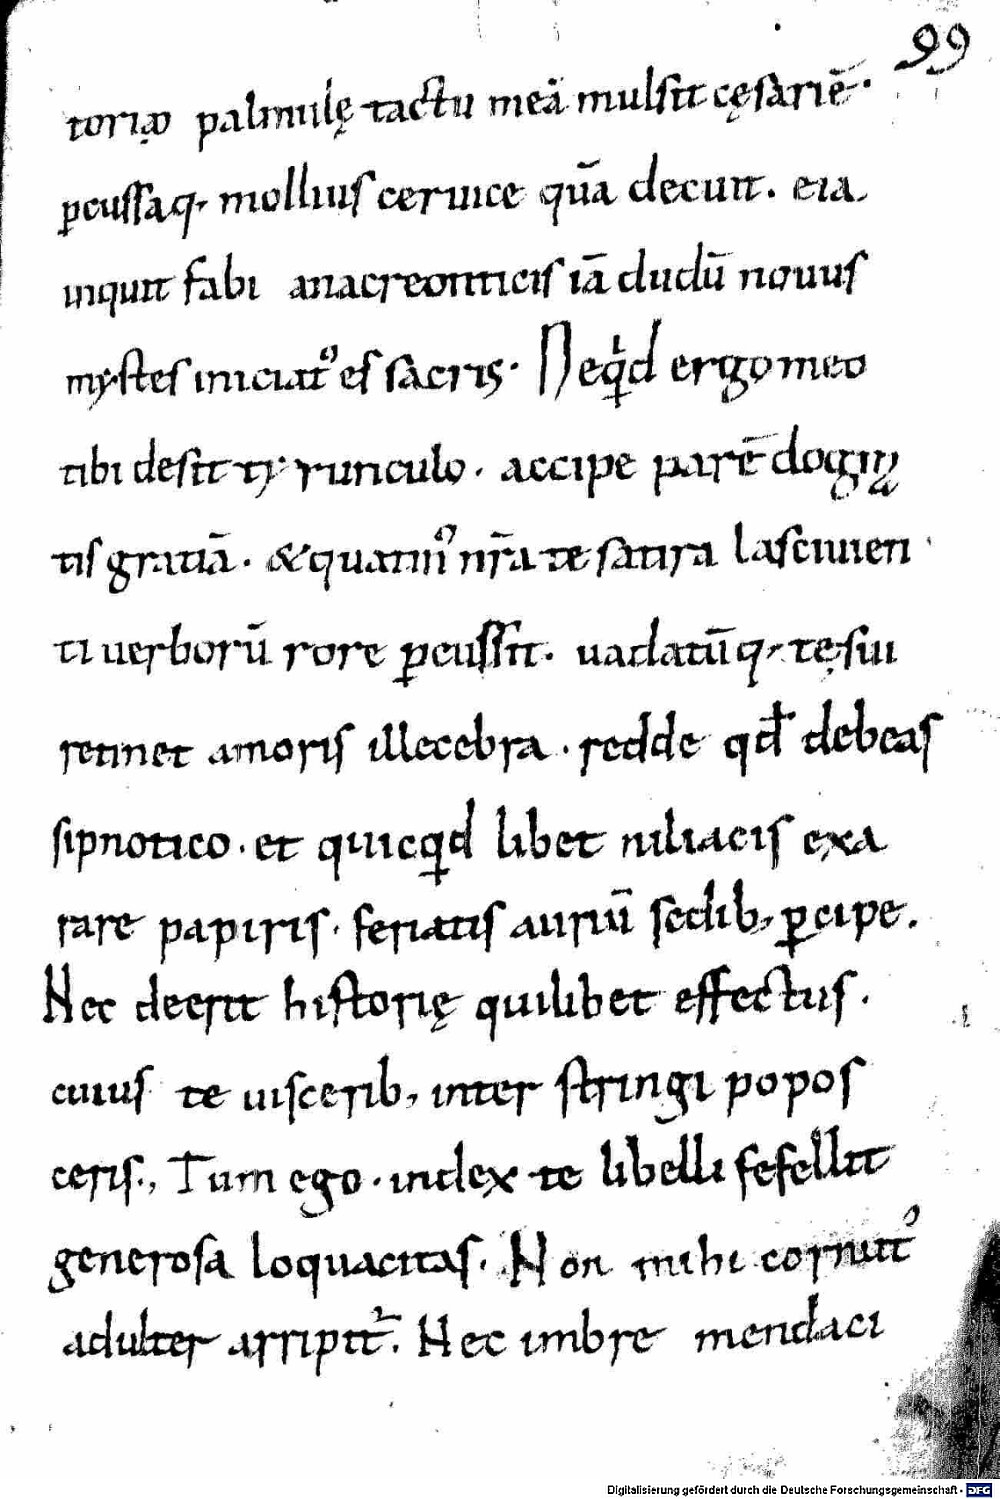 99
toriaꝫ palmulę tactu meā mulsit cęsariē·
ꝑcussaq, mollius ceruice quā decuit. eia
inquit fabi anacreonticis iā dudū nouus
mystes iniciatꝰ es sacris. Neqͥd ergo meo
tibi desit tyrunculo. accipe parē dogma
tis gratiā. & quatinꝰ nr̄a te satira lasciuien
ti uerborū rore ꝑcussit. uadatūq, te sui
retinet amoris illecebra. redde qd̄ debeas
sipnotico. et quicqd libet niliacis exa
rare papiris. feriatis auriū sedib, ꝑcipe.
Nec deerit historię quilibet effectus.
cuius te uiscerib, inter stringi popos
ceris., Tum ego. index te libelli fefellit
generosa loquacitas. Non mihi cornutꝰ
adulter arripit᷑. Nec imbre mendaci
Digitalisierung gefördert durch die Deutsche Forschungsgemeinschaft - DFG